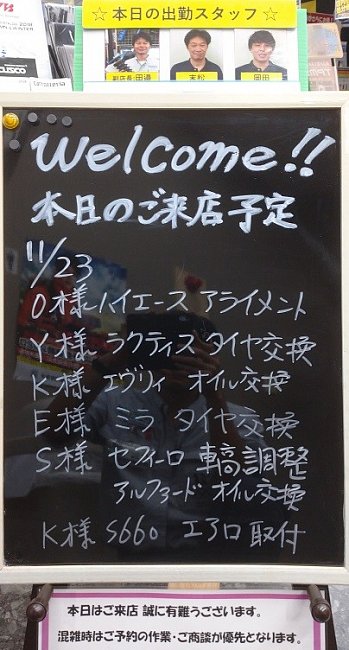 ☆本日の出勤スタッフ☆
副店長:田邉
末松
岡田
Welcome!!
本日のご来店予定
11/23
O様 ハイエース アライメント
Y様 ラクティス タイヤ交換
K様 エヴリィ オイル交換
E様 ミラ タイヤ交換
S様 セフィーロ 車高調整
アルファード オイル交換
K様 S660 エアロ取付
本日はご来店 誠に有難うございます。
混雑時はご予約の作業・ご商談が優先となります。